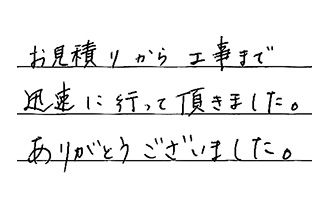 お見積りから工事まで
迅速に行って頂きました。
ありがとうございました。